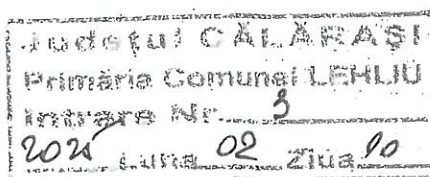 Județul CĂLĂRAȘI
Primăria Comunei LEHLIU
Intrare Nr. 3
Luna 02 Ziua